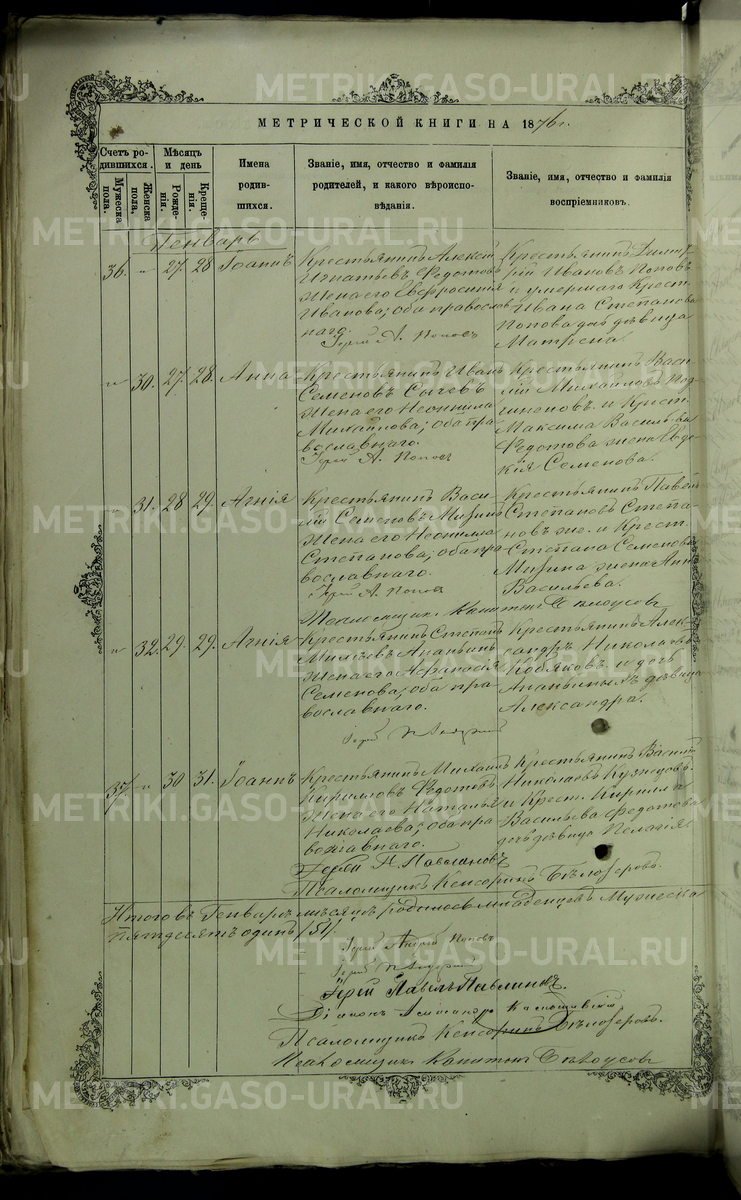 МЕТРИЧЕСКОЙ КНИГИ НА 1876 г.
Счетъ ро-
дившихся.
Мужеска
пола.
Женска
пола.
Мѣсяцъ
и день
Рожде-
нія.
Креще-
нія.
Имена
родив-
шихся.
Званіе, имя, отчество и фамилія
родителей, и какого вѣроиспо-
вѣданія.
Званіе, имя, отчество и фамилія
воспріемниковъ.
Генварь
36. " 27 28 Іоаннъ
Крестьянинъ Алексѣй
Игнатьевъ Ѳедотовъ
жена его Евфросинія
Иванова; оба православ
наго.
Іерей А. Поповъ
Крестьянинъ Димит
рій Ивановъ Поповъ
и умершаго Крест.
Ивана Степанова
Попова дочь дѣвица
Матрена.
" 30. 27. 28. Анна
Крестьянинъ Иванъ
Семеновъ Сычевъ
жена его Неонила
Михайлова; оба пра
вославнаго.
Іерей А. Поповъ
Крестьянинъ Васи
лій Михайловъ
и Крест.
Максима Васильева
Ѳедотова жена Евдо
кія Семенова.
" 31. 28 29. Агнія
Крестьянинъ Васи
лій Семеновъ Мизинъ
жена его Неонила
Степанова; оба пра
вославнаго.
Іерей А. Поповъ
Крестьянинъ Павелъ
Степановъ Степа
новъ же. и Крест.
Степана Семенова
Мизина жена Анна
Васильева.
Псаломщикъ Капитонъ Бѣлоусовъ
" 32. 29. 29. Агнія
Крестьянинъ Степанъ
Ананьинъ
жена его
Семенова; оба пра
вославнаго.
Іерей
Крестьянинъ Алек
сандръ Николаевъ
Кобяковъ. и дочь
Ананьиныхъ дѣвица
Александра.
37 " 30 31. Іоаннъ
Крестьянинъ Михаилъ
Кириловъ Ѳедотовъ
жена его Наталья
Николаева; оба пра
вославнаго.
Іерей П. Павлиновъ
Крестьянинъ Василій
Николаевъ Кузнецовъ.
и Крест. Кирилла
Васильева Ѳедотова
дочь дѣвица Пелагія
Псаломщикъ Кенсоринъ Бѣлозеровъ.
Итого въ Генварѣ мѣсяцѣ родилось младенцевъ Мужеска
пятдесятъ одинъ (51)
Іерей Андрей Поповъ
Іерей
Іерей Павелъ Павлиновъ.
Діаконъ Александръ
Псаломщикъ Кенсоринъ Бѣлозеровъ.
Псаломщикъ Капитонъ Бѣлоусовъ
METRIKI.GASO-URAL.RU